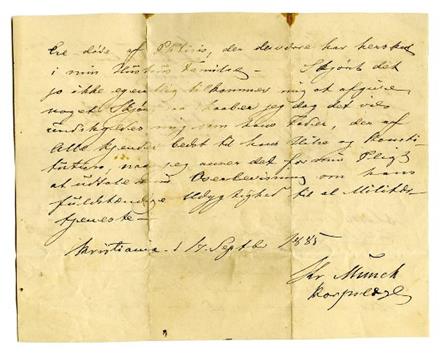 ere døde af Phtisis, der desværre har hersket
i min Hustrus Familie — Skjønt det
jo ikke egentlig tilkommer mig at afgive
noget Skjøn saa haaber jeg dog det vil
undskyldes mig som hans Fader, der af
Alle kjender bedst til hans Ultra og Konsti-
tution, naar jeg anser det for min Pligt
at udtale min Overbevisning om hans
fuldstændige Udygtighed til al Militær-
tjeneste —
Kristiania d 17 Septbr 1885
Chr Munch
Korpslæge